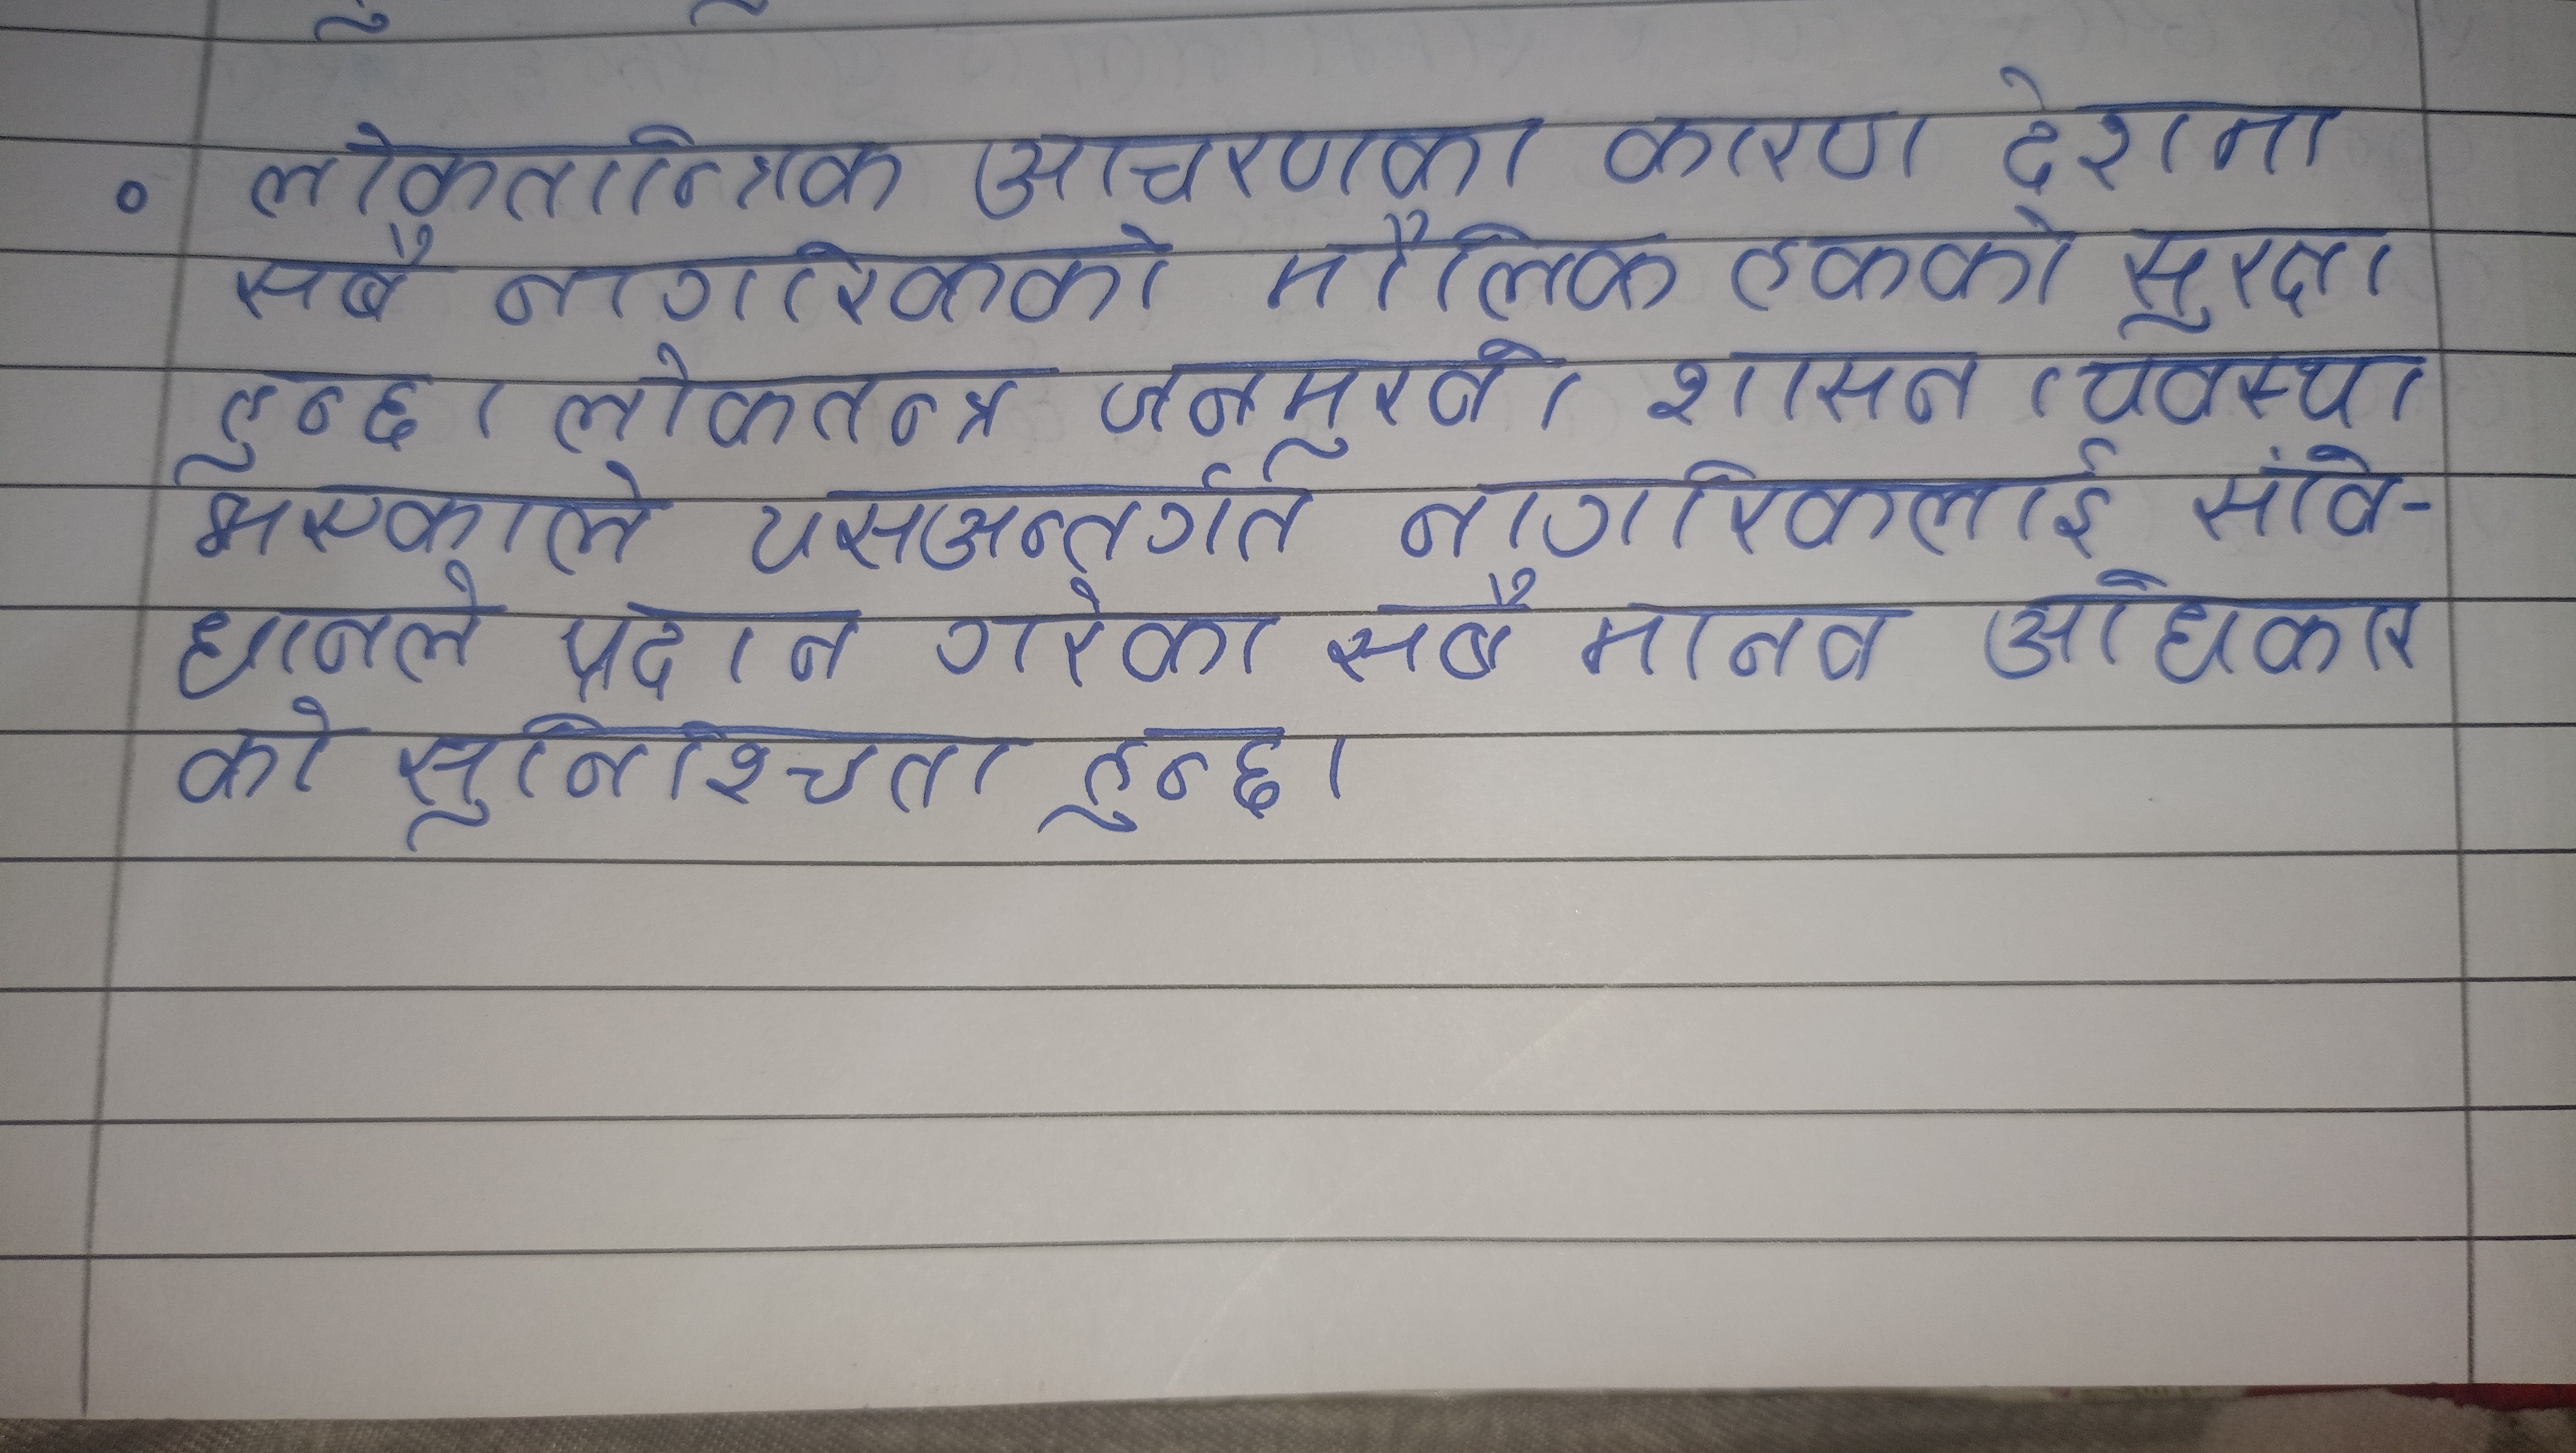 ० लोकतान्त्रिक आचरणका कारण देशमा
सबै नागरिकको मौलिक हकको सुरक्षा
हुन्छ। लोकतन्त्र जनमुखी शासन व्यवस्था
भएकाले यसअन्तर्गत नागरिकलाई संवि-
धानले प्रदान गरेका सबै मानव अधिकार
को सुनिश्चिता हुन्छ।